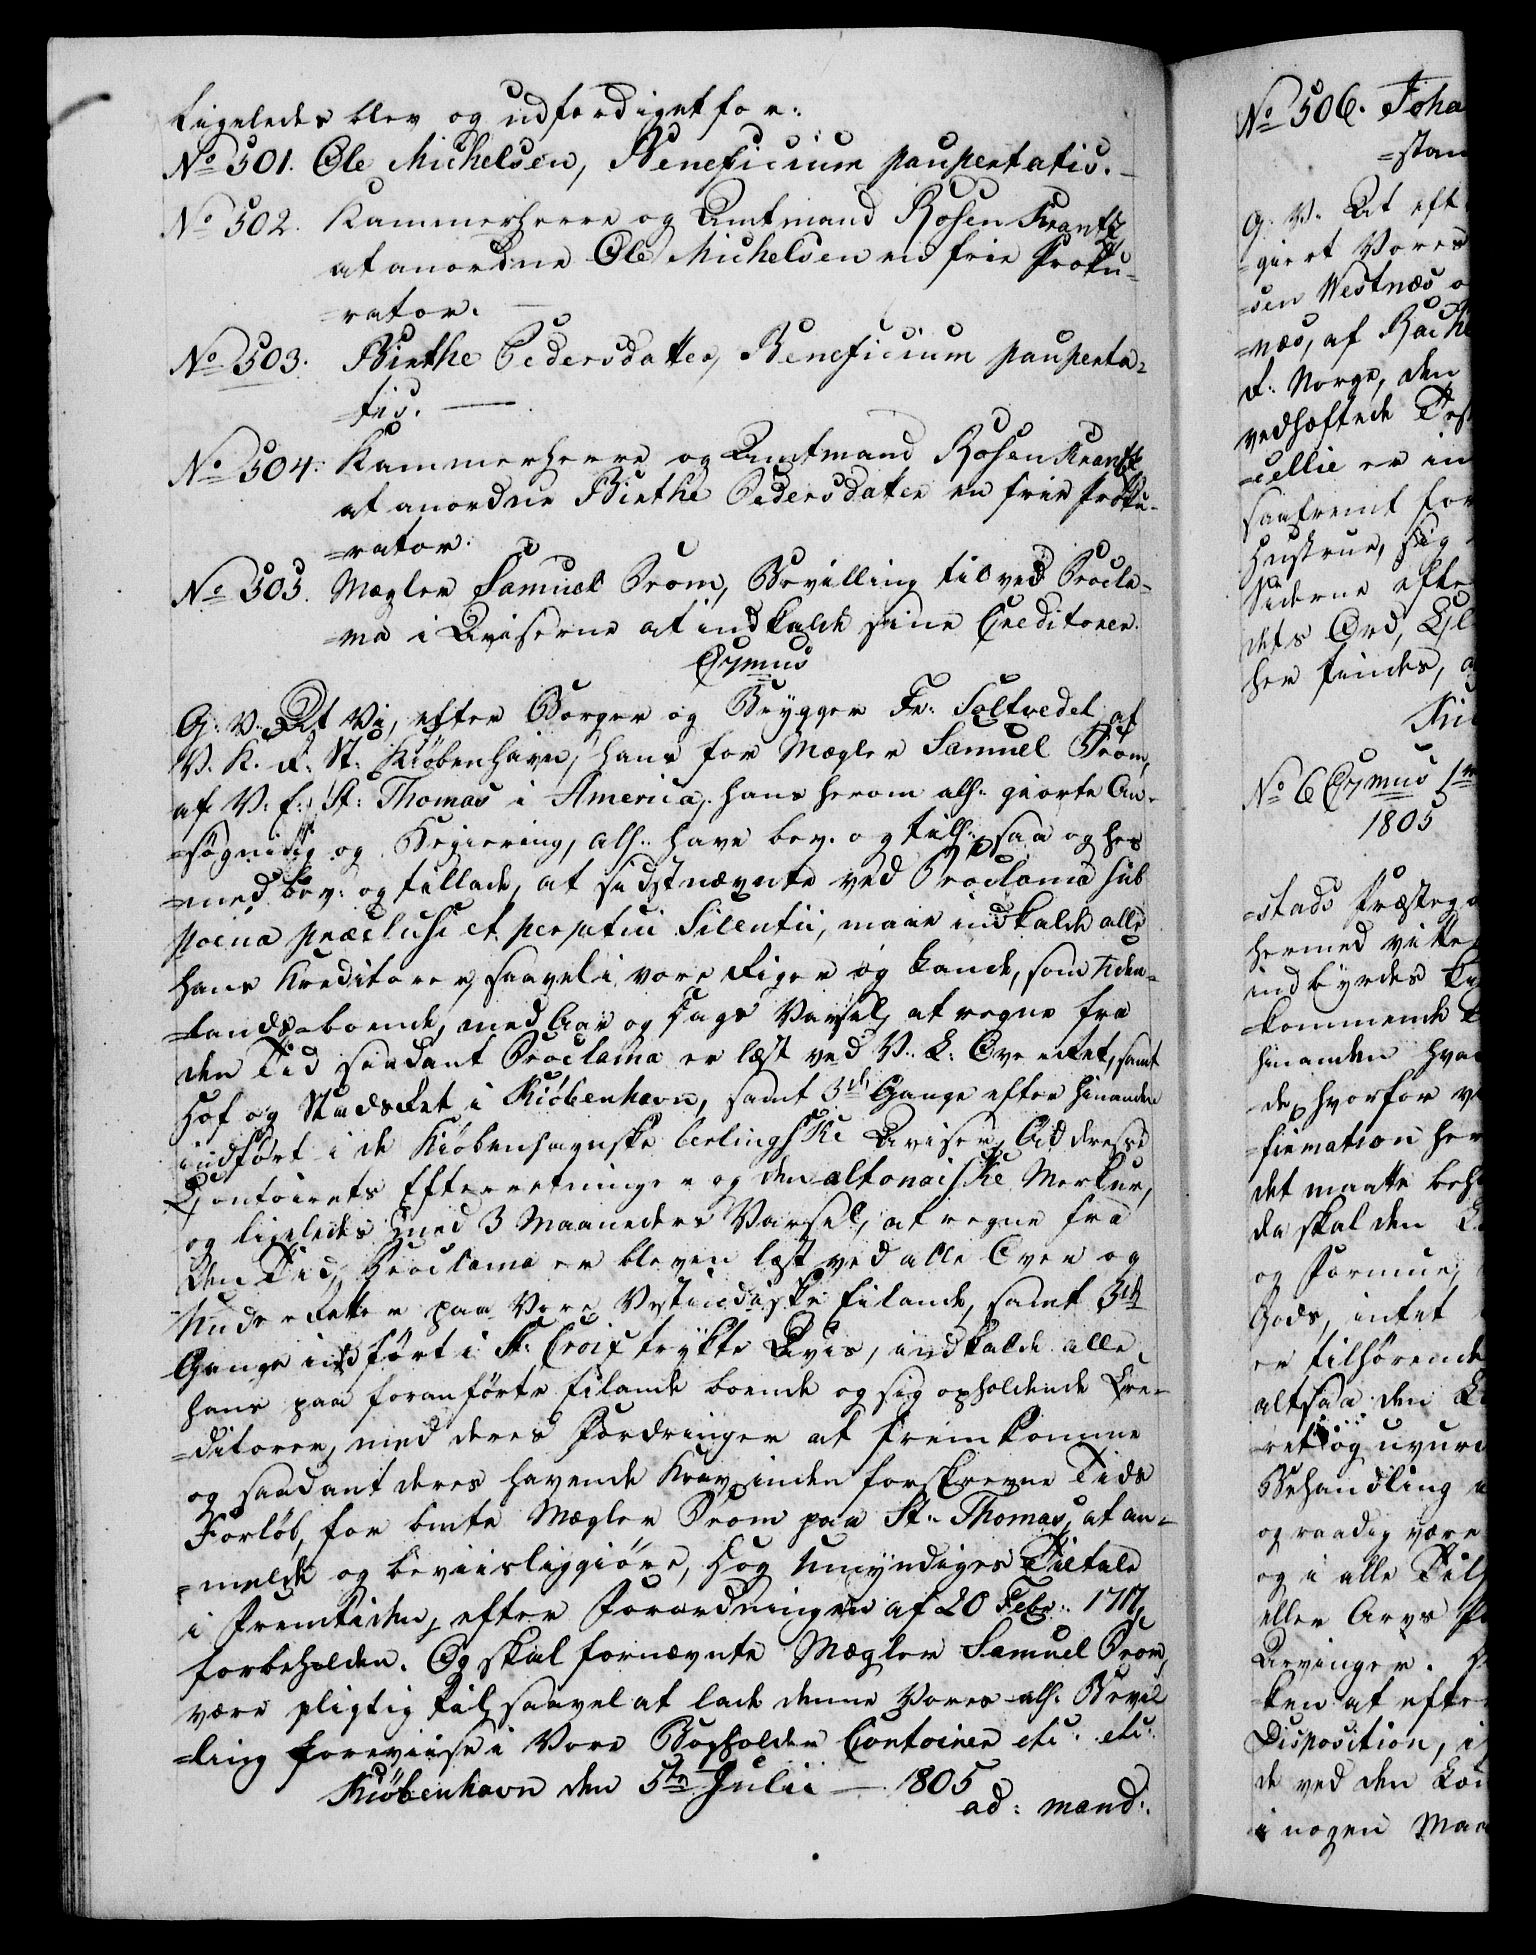 Ligeledes blev og udfærdiget for:
No 501. Ole Michelsen, Beneficium paupertatis. —
No 502. Kammerherre og Amtmand Rosenkrantz
at anordne Ole Michelsen en frie Proku-
=rator. —
No 503. Birthe Pedersdatter, Beneficium pauperta-
=tis. —
No 504. Kammerherre og Amtmand Rosenkrantz
at anordne Birthe Pedersdatter en frie Proku-
=rator.
No 505. Mægler Samuel Prom, Bevilling til ved Procla-
=ma i Aviserne at indkalde sine Creditorer.
Cr7mus
G: V: At Vi, efter Borger og Brygger Fr: Toltvedel, af
V. K. R. St: Kiöbenhavn, hans for Mægler Samuel Prom,
af V. E: St: Thomas i America, hans herom alh: giorte An-
=søgning og Begiering, alh: have bev. og tilh: saa og her
=med bev: og tillade, at sidstnævnte ved Proclama sub
poena præclusi et perpetui Silentii, maae indkalde alle
hans Kreditorer, saavel i vore Riger og Lande, som Uden-
=lands-boende, med Aar og Dags Varsel, at regne fra
den Tid saadant Proclama er læst ved V. L: Over Ret, samt
Hof og Stads Ret i Kiöbenhavn, samt 3de Gange efter hinanden
indført i de Kiöbenhavnske berlingske Aviser, Addresse
Contoirets Efterretninger og den altonaiske Merkur,
og ligeledes med 3 Maaneders Varsel, at regne fra
den Tid, Proclama er bleven læst ved alle Over og
Under Retter paa Vore Vestindiske Eilande, samt 3de
Gange indført i St: Croix trykte Avis, indkalde alle
hans paa foranførte Eilande boende og sig opholdende Cre-
=ditorer, med deres Fordringer at fremkomme
og saadant deres havende Krav inden forskrevne Tids
Forløb, for bemte Mægler Prom paa St: Thomas, at an-
=melde og beviisliggiøre, dog Umyndiges Tiltale
i Fremtiden, efter Forordningen af 20 Febr: 1717,
forbeholden. Og skal fornævnte Mægler Samuel Prom,
være pligtig til, saavel at lade denne Vores alh: Bevil
=ling foreviise i Vore Bogholder Contoirer etc: etc:
Kiöbenhavn den 5te Julii — 1805
ad: mand:.
No 506. Joha
=stan
G: V: At eft
=giert Vores
=sen Westnæs o
=næs, af Bakke
R: Norge, den
vedhæftede Test
=cellie er in
saafremt for
Hustrue, sig
Siderne efte
dets Ord, Ell
her findes, a
Kiö
No 6 Cr7mus 1te
1805
=stads Præsteg
hermed vitte
indbyrdes
=kommende
hinanden hva
=de, hvorfor v
=firmation her
det maatte beh
da skal den
og Formue,
Gods, intet
er tilhørende
altsaa den
=ret og uvurd
Behandling
og raadig være
og i alle Tilf
eller Arvs
Arvinger.
=ken at efter
Disposition, i
de ved den
i nogen Maa